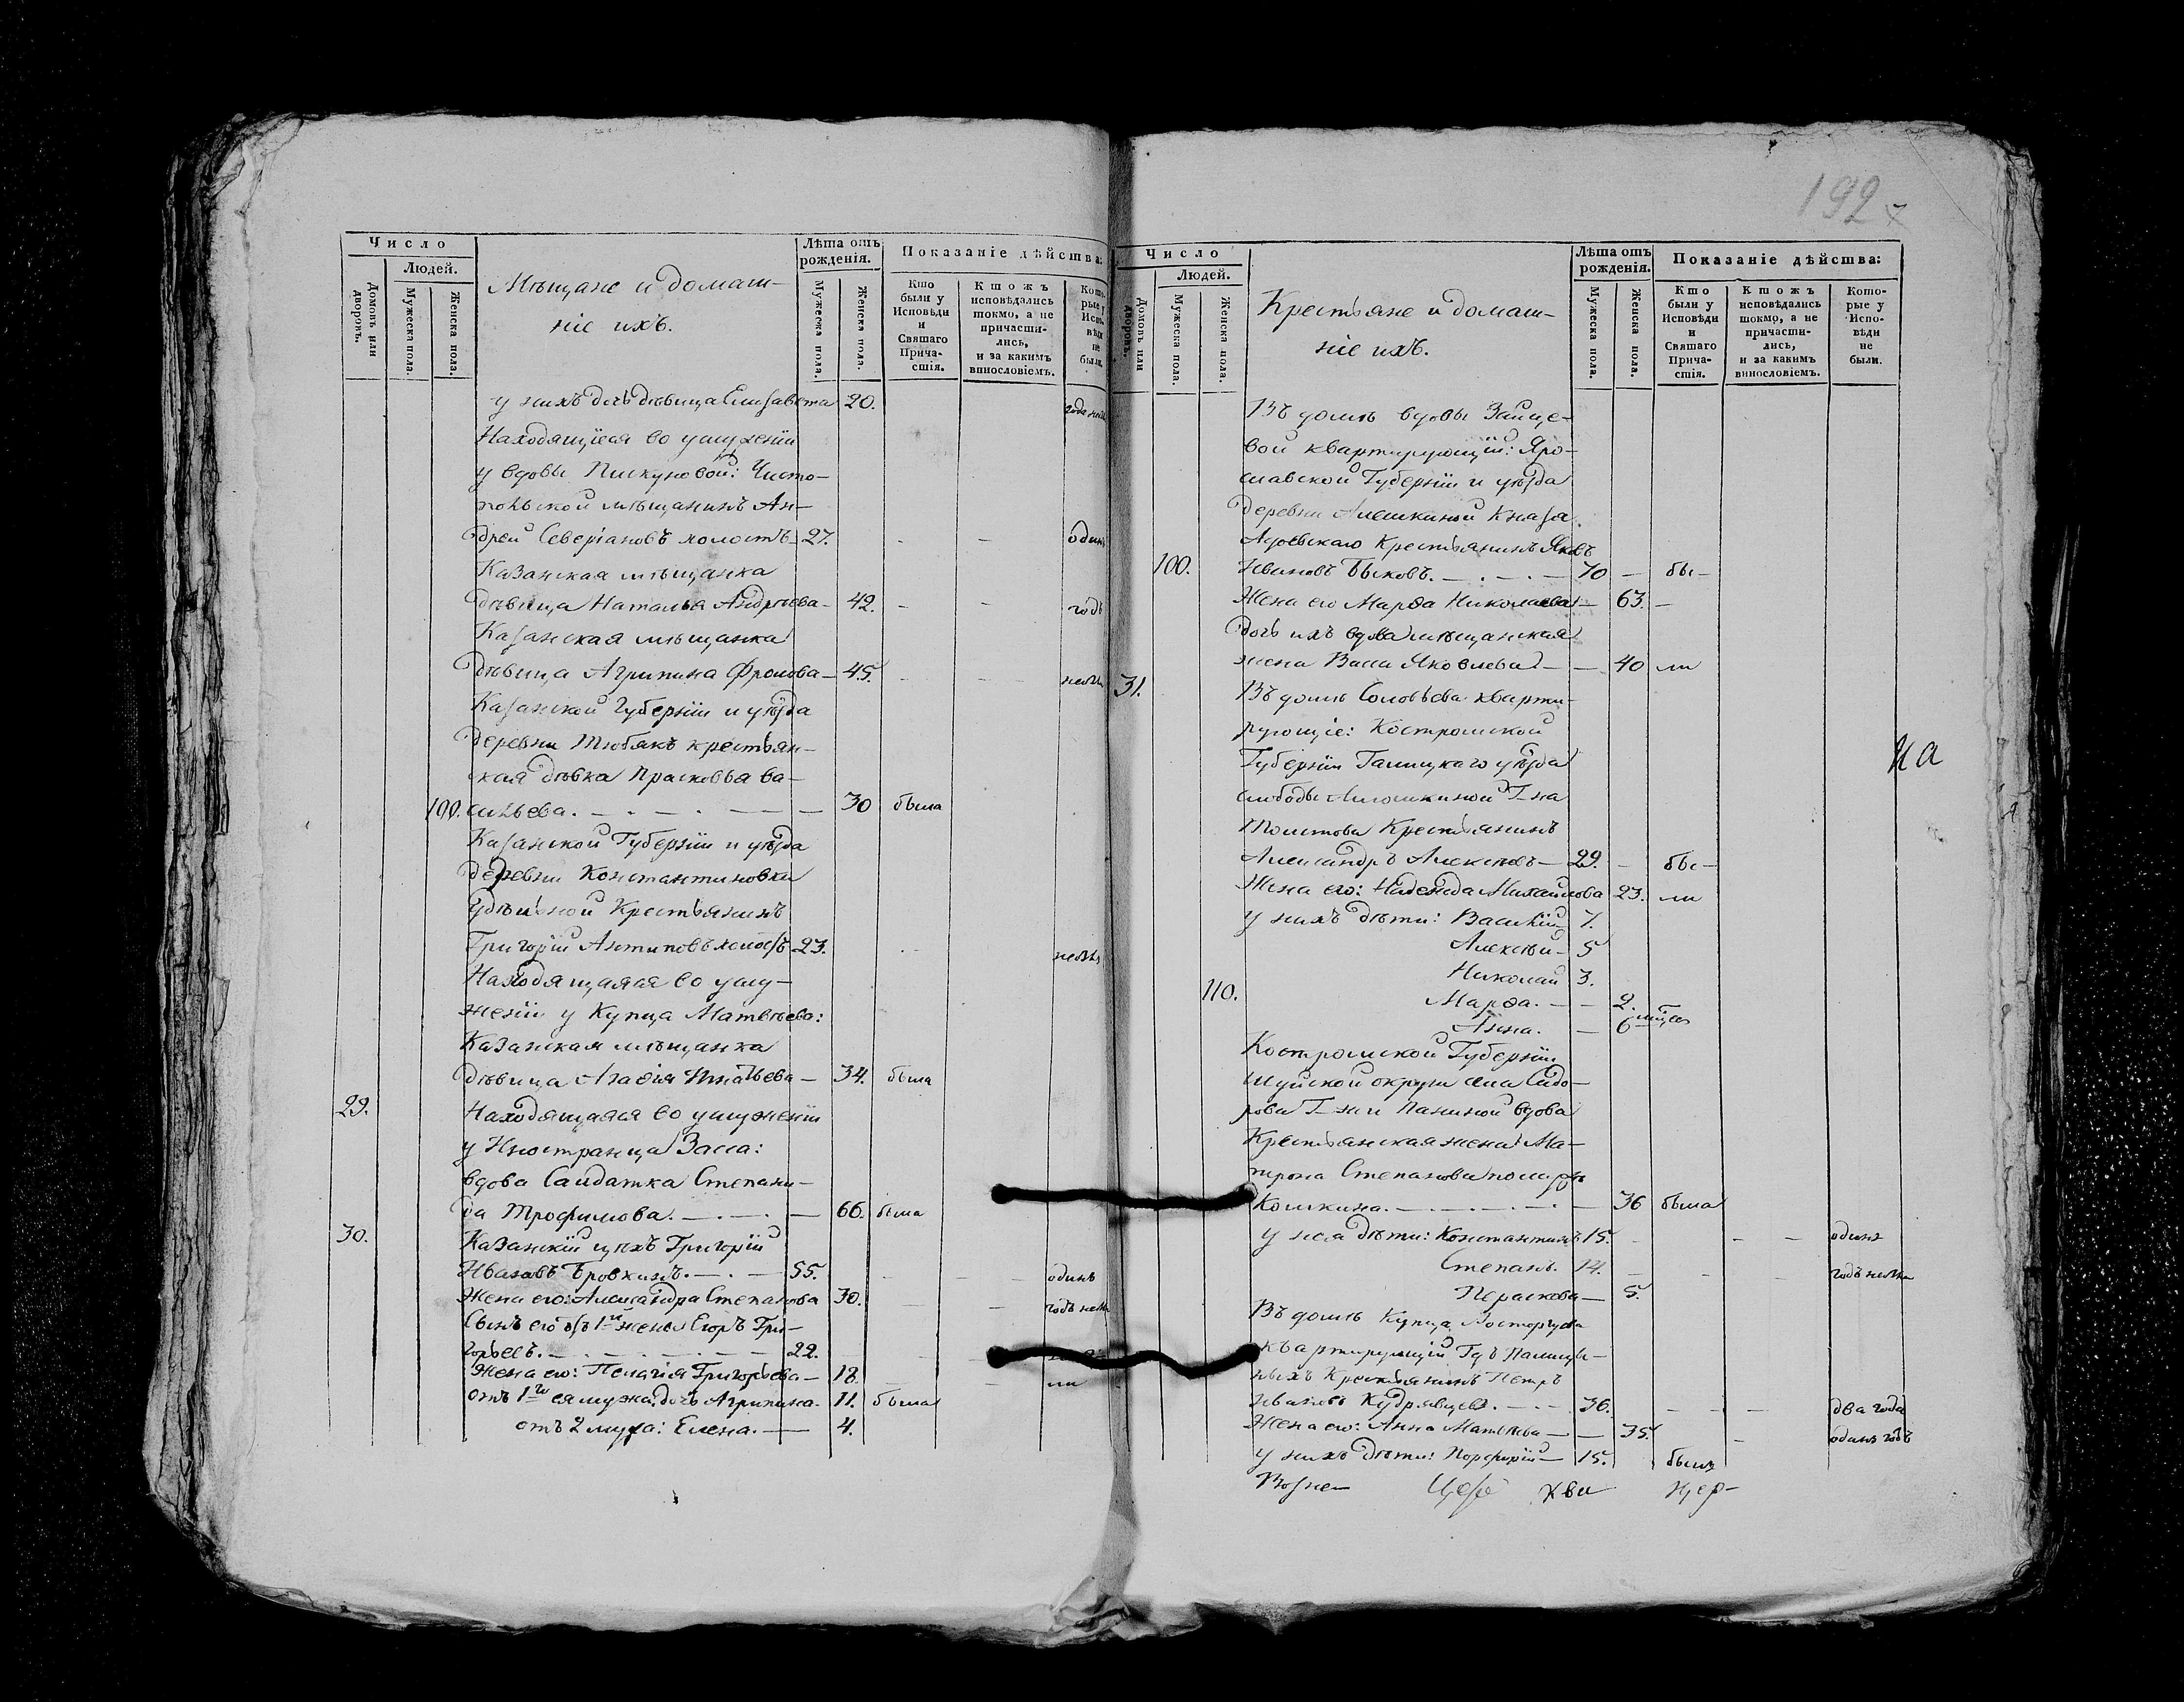 192
Число
Людей.
Домовъ или дворовъ.
Мужеска пола.
Женска пола.
Мѣщане и домаш-
ніе ихъ.
Лѣта отъ рожденія.
Мужеска пола.
Женска пола.
Показаніе дѣйства:
Кто были у Исповѣди и Святаго Прича-стія.
Ктожъ исповѣдались токмо, а не причасти-лись, и за какимъ винословіемъ.
Кото-рые у Испо-вѣди не были.
у нихъ дочь дѣвица Елисавета 20.
Находящіеся во услуженіи
у вдовы Пискуновой: Чисто-
польской мѣщанинъ Ан-
дрей Северіановъ холостъ 27. одинъ
Казанская мѣщанка
дѣвица Наталья Андреева 42. годъ
Казанская мѣщанка
дѣвица Агрипина Фролова 45. небы
Казанской Губерніи и уѣзда
деревни Тюбякъ крестьян-
ская дѣвка Прасковья Ва-
100. сильева. 30 была
Казанской Губерніи и уѣзда
деревни Константиновки
Удѣльной Крестьянинъ
Григорій Антиповъ холостъ 23. небылъ
Находящаяся во услу-
женіи у Купца Матвѣева:
Казанская мѣщанка
дѣвица Агафія Игнатьева 34. была
29. Находящаяся во услуженіи
у Иностранца Засса:
вдова Салдатка Степани-
да Трофимова. 66. была
30. Казанскій цехъ Григорій
Ивановъ Бровкинъ. 55. одинъ
Жена его: Александра Степанова 30. годъ небы
Сынъ его отъ 1й жены Егоръ Гри-
горьевъ. 22.
Жена его: Пелагія Григорьева 18. ли
отъ 1го ея мужа: дочь Агрипина. 11. была
отъ 2 мужа: Елена. 4.
Число
Людей.
Домовъ или дворовъ.
Мужеска пола.
Женска пола.
Крестьяне и домаш-
ніе ихъ.
Лѣта отъ рожденія.
Мужеска пола.
Женска пола.
Показаніе дѣйства:
Кто были у Исповѣди и Святаго Прича-стія.
Ктожъ исповѣдались токмо, а не причасти-лись, и за какимъ винословіемъ.
Кото-рые у Испо-вѣди не были.
Въ домѣ вдовы Зайце-
вой квартирующій: Яро-
славской Губерніи и уѣзда
деревни Алешкиной Князя
Крестьянинъ Яковъ
100. Ивановъ Быковъ. 70 бы-
Жена его Марфа Николаева 63.
дочь ихъ вдова мѣщанская
жена Васса Яковлева 40 ли
31. Въ домѣ Соловьева кварти-
рующіе: Костромской
Губерніи Галицкаго уѣзда
слободы Г-на
Толстова Крестьянинъ
Александръ Алексѣевъ 29. бы-
Жена его: Надежда Михайлова 23. ли
у нихъ дѣти: Василій 7.
Алексѣй 5
Николай 3.
110. Марфа. 2.
Анна. 6 мѣсяц
на
Костромской Губерніи
Шуйской округи села Сидо-
рова Г-жи Паниной вдова
Крестьянская жена Ма-
трона Степанова
Кошкина. 36 была
у нея дѣти: Константинъ 15. одинъ
Степанъ. 14. годъ небы
Параскева 5.
Въ домѣ Купца Расторгуева
квартирующій
Крестьянинъ Петръ
Ивановъ Кудрявцевъ. 36. два года
Жена его: Анна Матвѣева 35. одинъ годъ
у нихъ дѣти: Порфирій 15. былъ
Возне- хви цер-